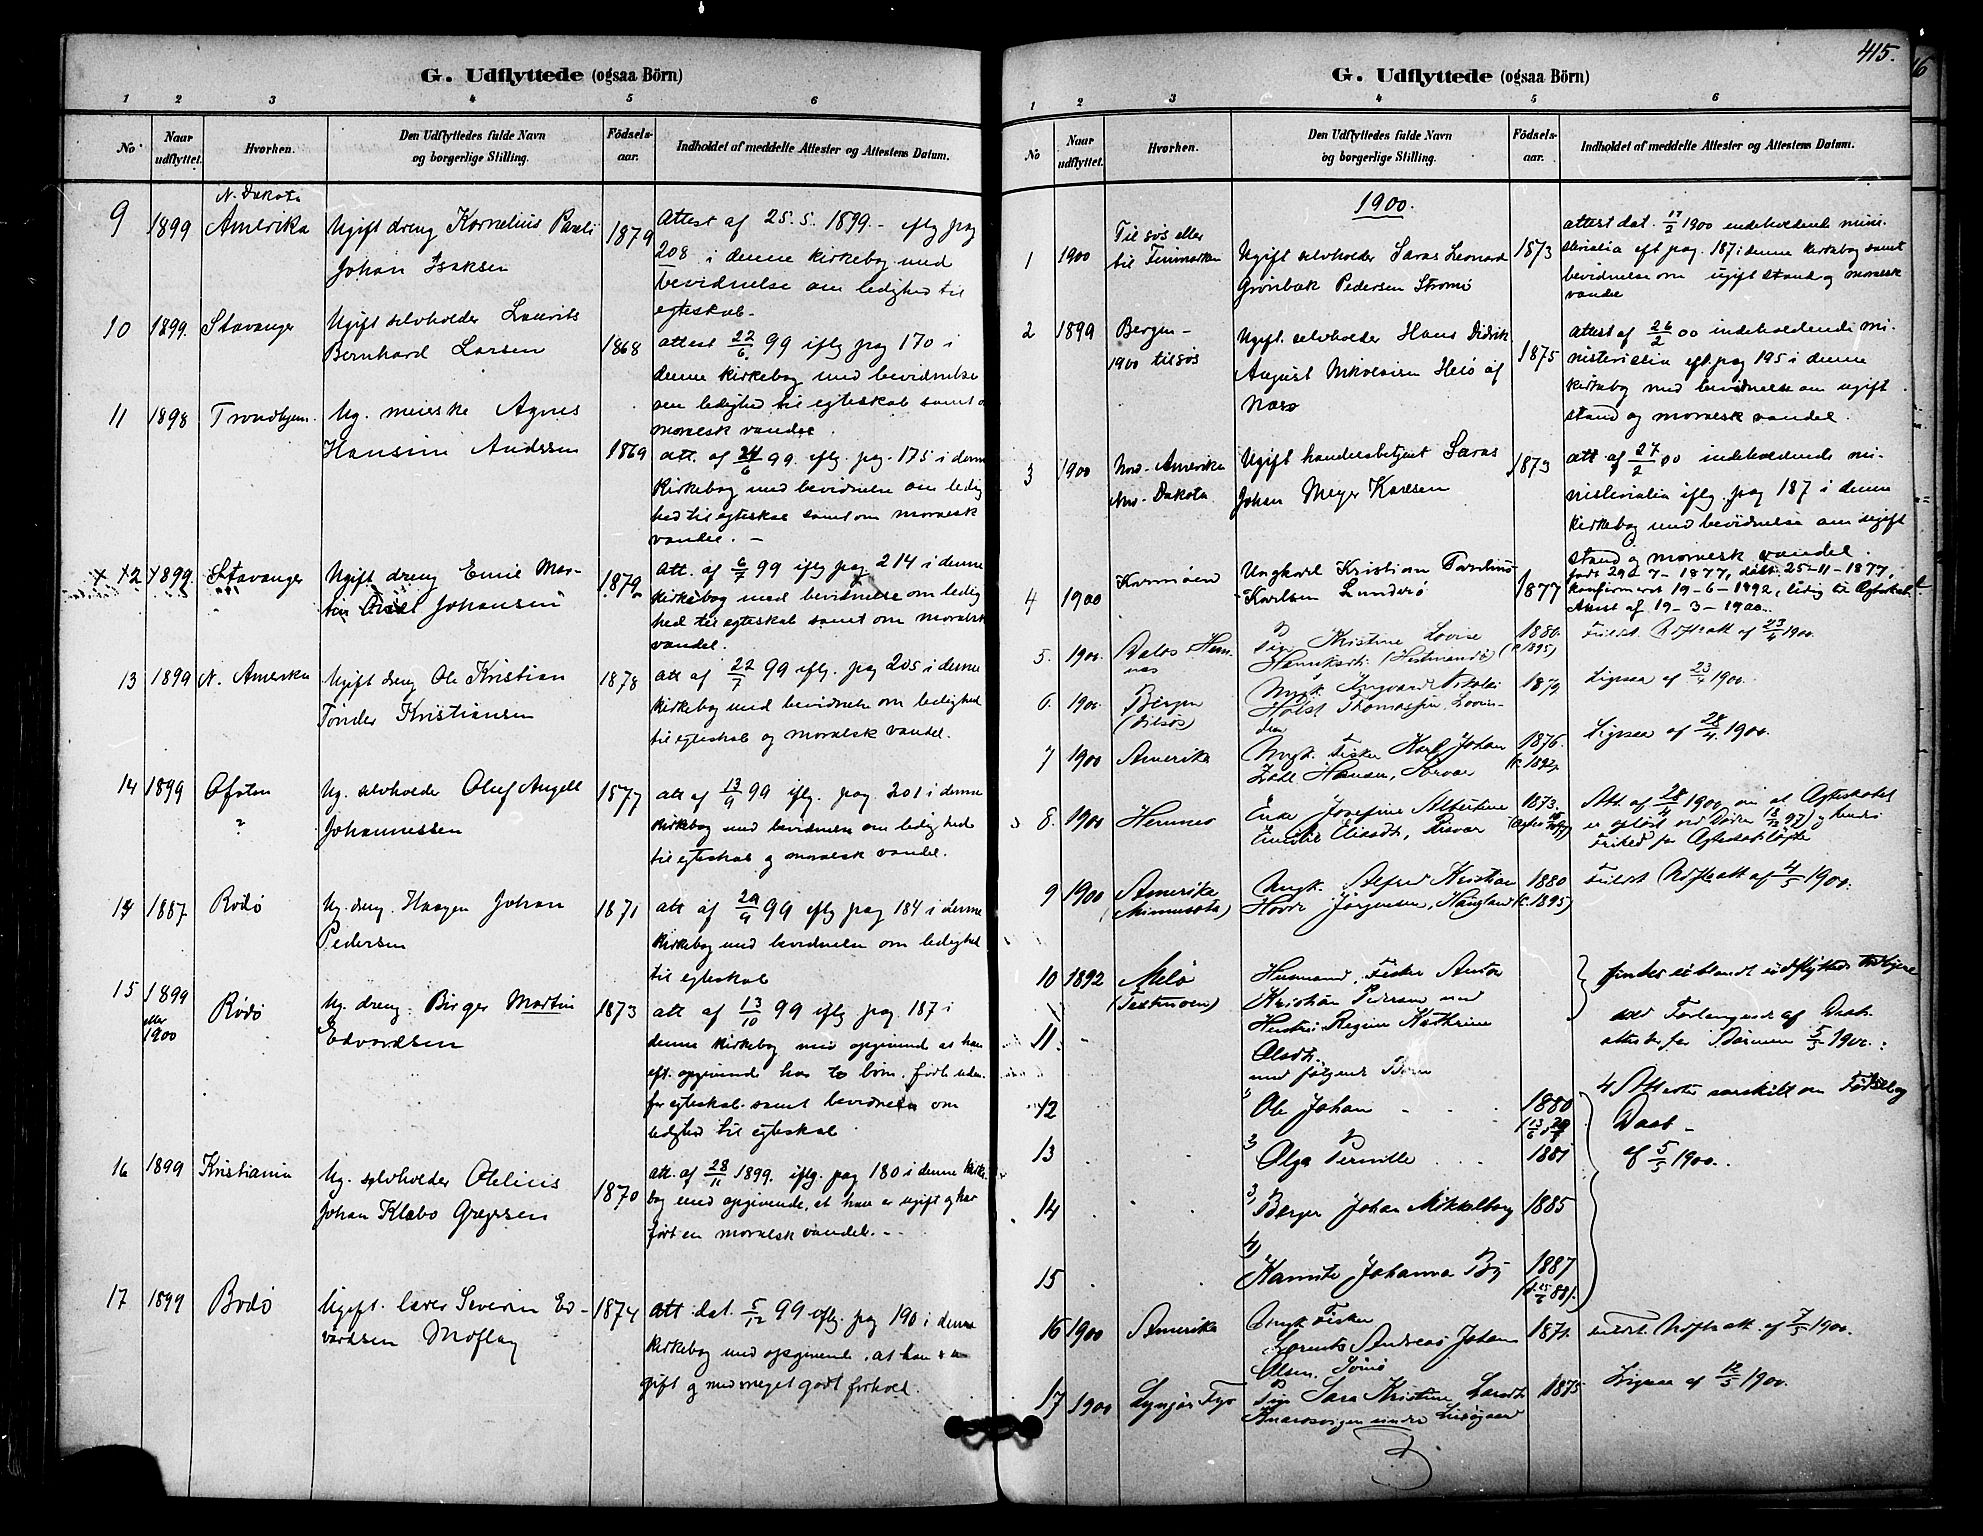 G. Udflyttede (ogsaa Börn)
1 2 3 4 5 6
No Naar udflyttet. Hvorhen. Den Udflyttedes fulde Navn og borgerlige Stilling. Födsels-aar. Indholdet af meddelte Attester og Attestens Datum.
N. Dakota
9 1899 Amerika Ugift dreng Kornelius Pareli 1879 Attest af 25.5.1899 – eflg pag
Johan Isaksen 208 i denne kirkebog med
bevidnelse om ledighed til
egteskab –
10 1899. Stavanger Ugift selvholder Laurits
Bernhard Larsen 1868 attest 22/6 99 iflg pag 170 i
denne kirkebog med bevidnelse
om ledighed til egteskab samt
moralsk vandel.
11 1898 Trondhjem Ug. meierske Agnes
Hansine Andersen 1869 att. af 24/6 99 eflg. pag. 175 i denne
kirkebog med bevidnelse om ledig
hed til egteskab samt om moralsk
vandel. –
12 1899. Stavanger Ugift dreng Emil Mar- 1879 Att. af 6/7 99 iflg pag 214 i denne
Johansen kirkebog med bevidnelse om ledig
hed til egteskab samt om moralsk
vandel.
13 1899 N. Amerika Ugift dreng Ole Kristian 1878 att af 22/7 99 iflg pag 205 i denne
Tønder Kristiansen kirkebog med bevidnelse om ledighed
til egteskab og moralsk vandel.
14 1899 Ofoten Ug. selvholder Oluf Angell 1877 att af 13/9 99 iflg. pag. 201 i denne
? Johannessen kirkebog med bevidnelse om ledighed
til egteskab og moralsk vandel.
14 1887 Rødø Ug. dreng. Haagen Johan 1871 att af 29/9 99 eflg pag 184 i denne
Pedersen kirkebog med bevidnelse om ledighed
til egteskab
15 1899 eller 1900 Rødø Ug. dreng. Birger Martin 1873 att af 13/10 99 eflg pag 187 i
Edvardsen denne kirkebog med opgivend at han
eft. opgivend har to børn. født uden-
for egteskab samt bevidnelse om
ledighed til egteskab
16 1899 Kristiania Ug. selvholder Olelius att. af 28/11 1899. iflg. pag 180 i denne kirke-
Johan Klæbo Gregersen 1870 bog med opgivende, at han er ugift og har
ført en moralsk vandel. –
17 1899 Bodø Ugift. lærer Severin Ed- 1874 Att dat. 5/12 99 eflg. pag 190 i denne
vardsen Moflag kirkebog med opgivende, at han er u
gift og med meget godt forhold.
415.
G. Udflyttede (ogsaa Börn)
1 2 3 4 5 6
No Naar udflyttet. Hvorhen. Den Udflyttedes fulde Navn og borgerlige Stilling. Födsels-aar. Indholdet af meddelte Attester og Attestens Datum.
1900.
attest dat. 17/2 1900 indeholdende mini-
1 1900 Til søs eller til Finmarken Ugift selvholder Saras Leonard 1873 sterialia eft pag. 187 i denne kirkebog samt
Grønbek Pedersen Strømø bevidnelse om ugift stand og moralsk
vandel
2 1899 Bergen – Ugift. selvholder Hans Didrik attest af 26/2 00 indeholdende mi-
1900 tilsøs August Nikolaisen Heiø af 1875 nisterialia eft. pag 195 i denne
Næs kirkebog med bevidnelse om ugift
stand og moralsk vandel.
3 1900 Nord-Amerika Ugift handelsbetjent Saras 1873 att af 27/2 00 indeholdende mi-
Nord-Dakota Johan Meyer Karlsen nisterialia eflg. pag 187 i denne
kirkebog med bevidnelse om ugift
stand og moralsk vandel.
4 1900 Karmøen Ungkarl Kristian Parelius 1877 født 29-7-1877, døbt 25-11-1877,
Karlsen Lunderø konfirmeret 19-6-1892, ledig til Egteskab
Attest af 19-3-1900.
5. 1900. Pige Kristine Lovise 1880 Fuldst. Udfl.att af 23/4 1900
Henriksdt. (Hestmandø) (k. 1895)
6. 1900 Bergen Ungk. Ingvard Nikolai 1879 Ligesaa af 23/4 1900.
(tilsøs) Holst Thomassen, Lovun-
den
7 1900 Amerika Ungk. Fisker Karl Johan 1876. Ligesaa af 28/4 1900.
Zahl Hansen, Sørvær
8. 1900 Hemnes Enke Josefine Albertine 1873. Att. af 28/4 1900 om at Egteskabet
Elisadt.
9 1900 Amerika Ungk. Alfred Kristian 1880 Fuldst Udfl.att af 4/5 1900.
(Minnesota) Hovde Jørgensen, (k. 1895)
10 1892 Melø Husmand, Fisker Anton findes iblandt udflyttede tidligere
Kristian Pedersen med ved Forlangende af Daab
11. Hustru Regine Kathrine attester for Børnene 5/5 1900.
Olsdt.
med følgende Børn 4 Attester særskilt om Fødsel og
12 1) Ole Johan 1880 Daab –
13 2) Olga Pernille 1881 af 5/5 1900.
14 3) Berger Johan Mikkelborg 1885
15 4) Kamite Johanna By 1887
16 1900 Amerika Ungk. Fisker
Lorents Andreas Johan 1871. Fuldst. Udfl.att. af 7/5 1900.
Olsen, Sørnø
17 1900 Lyngør Fyr Pige Sara Kristine Larsdt. 1875 Ligesaa af 12/5 1900